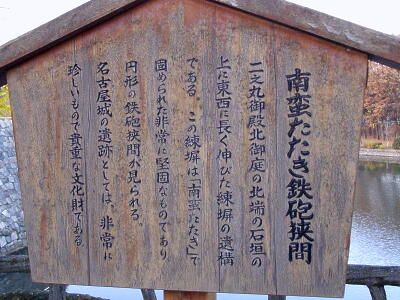 南蛮たたき鉄砲狭間
二之丸御殿北御庭の北端の石垣の
上に東西に長く伸びた練塀の遺構
である。この練塀は「南蛮たたき」で
固められた非常に堅固なものであり
円形の鉄砲狭間が見られる。
名古屋城の遺跡としては、非常に
珍しいもので貴重な文化財である